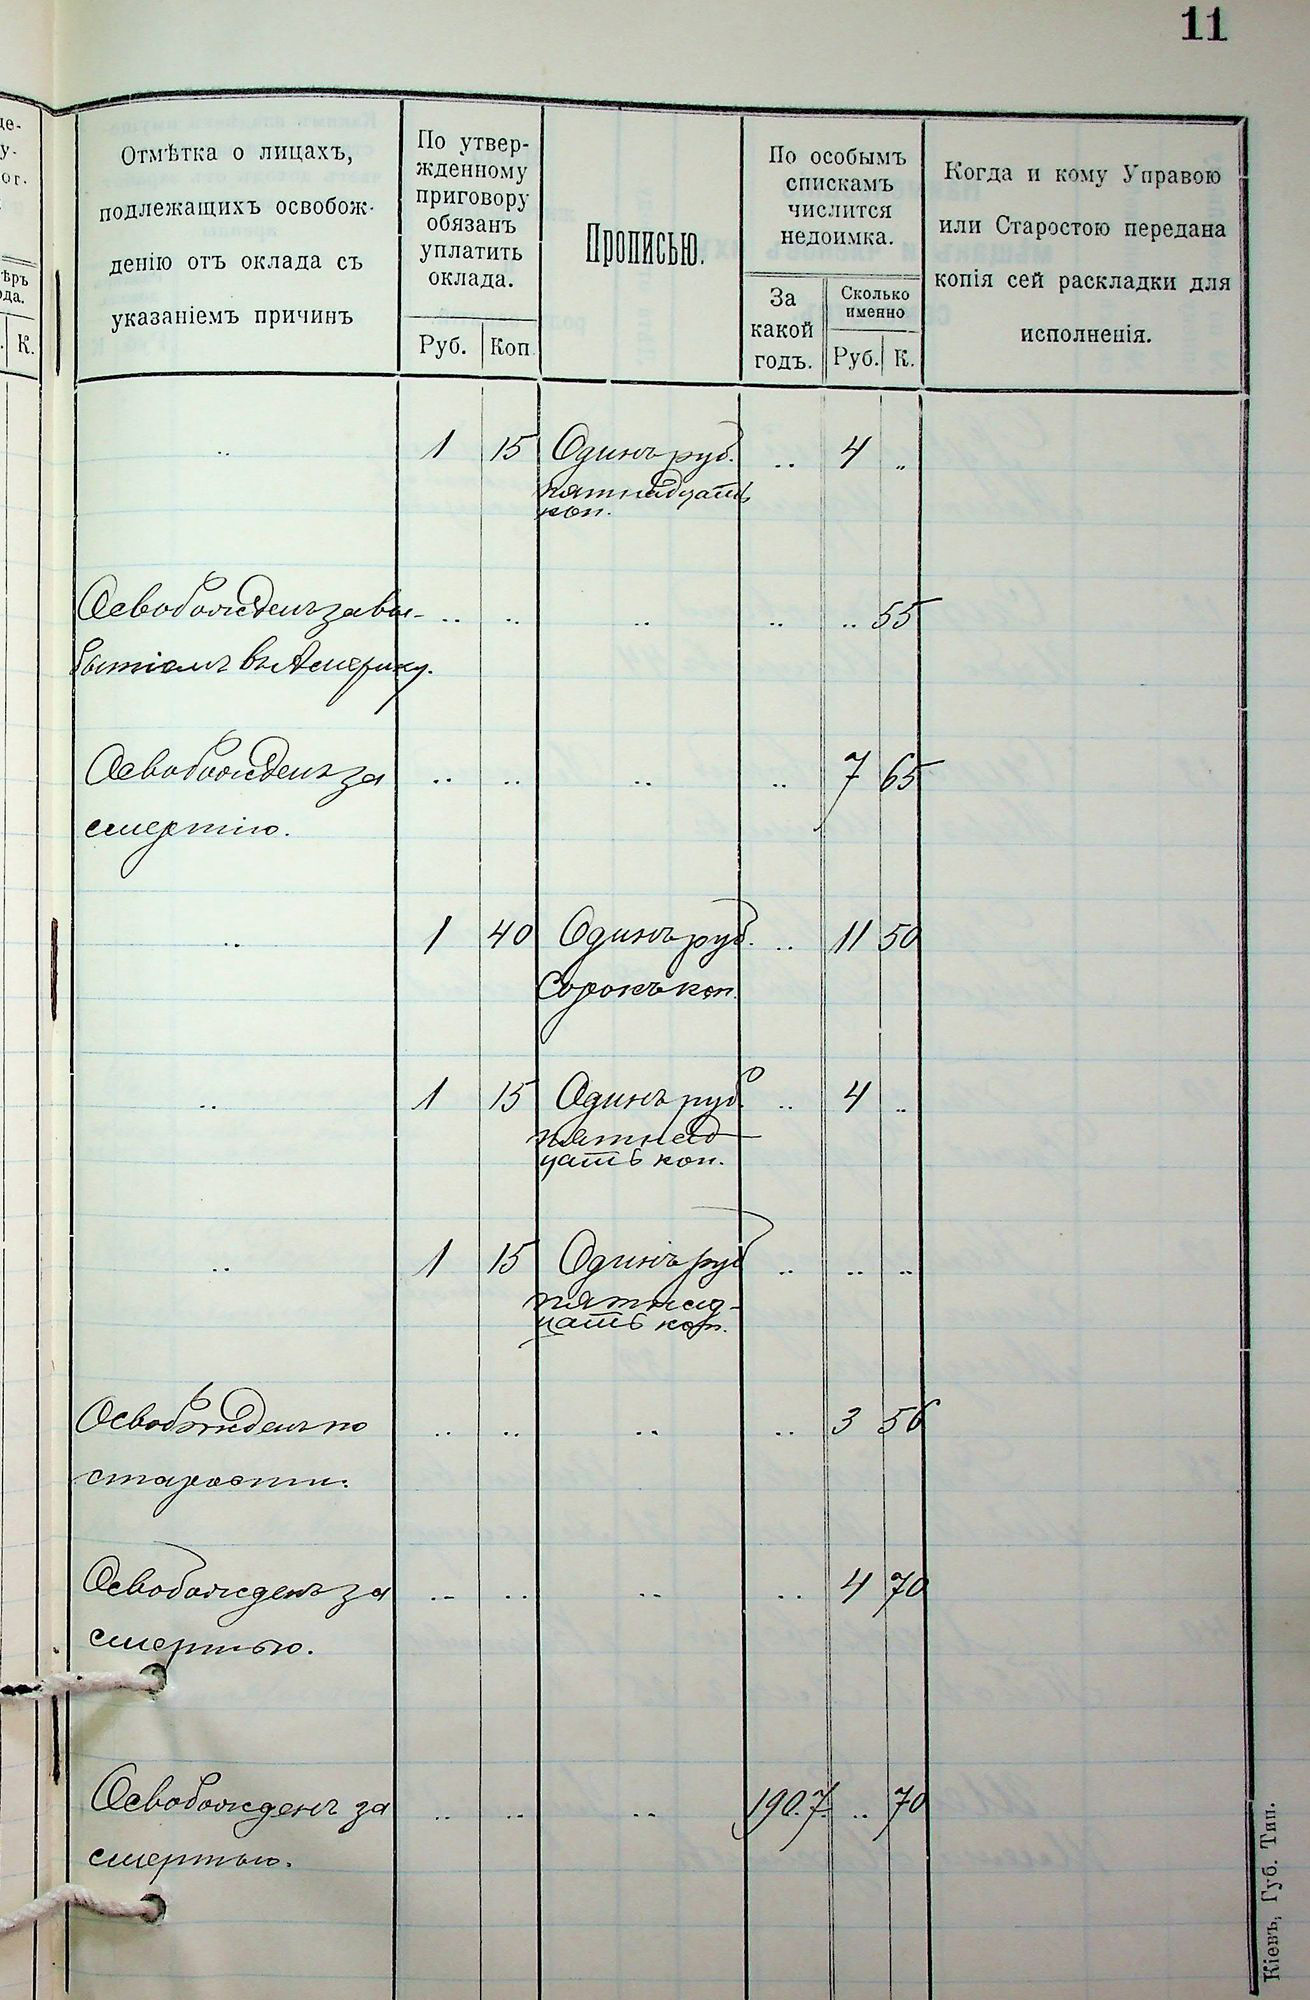 11
Отмѣтка о лицахъ,
подлежащихъ освобож-
денію отъ оклада съ
указаніемъ причинъ
По утвер-
жденному
приговору
обязанъ
уплатить
оклада.
Руб. Коп
Прописью.
По особымъ
спискамъ
числится
недоимка.
За
какой
годъ.
Сколько
именно
Руб. К.
Когда и кому Управою
или Старостою передана
копія сей раскладки для
исполненія.
К.
„ 1 15 Одинъ руб. „ 4 „
пятнадцать
коп.
Освобожденъ за вы- „ „ „ „ „ 55
бытіемъ въ Америку.
Освобожденъ за „ „ „ „ 7 65
смертію.
„ 1 40 Одинъ руб. „ 11 50
Сорокъ коп.
„ 1 15 Одинъ руб. „ 4 „
пятнад
цать коп.
„ 1 15 Одинъ руб „ „ „
пятнад-
цать коп.
Освобожденъ по „ „ „ „ 3 56
старости.
Освобожденъ за „ „ „ „ 4 70
смертью.
Освобожденъ за „ „ „ 1907. „ 70
смертью.
Кіевъ, Губ. Тип.